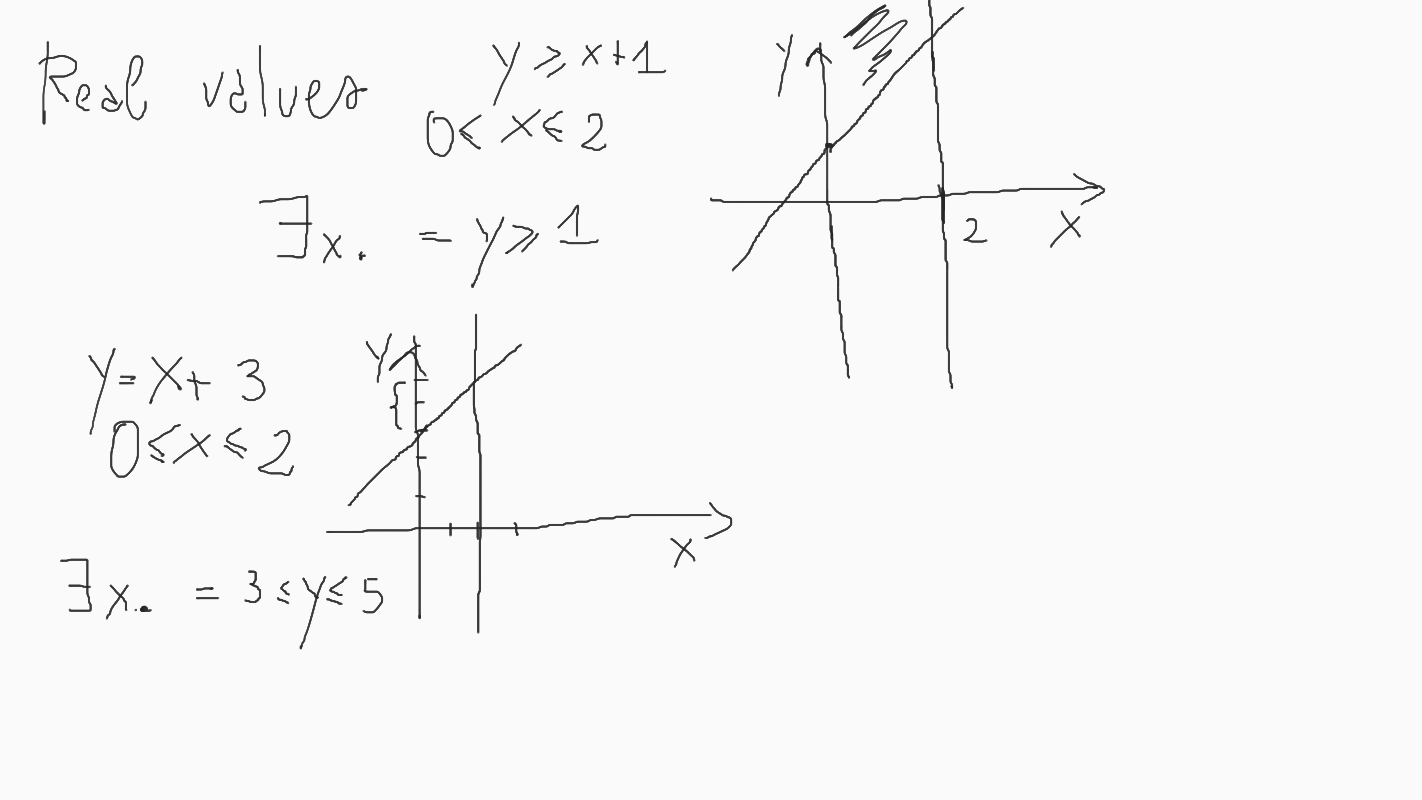 Real values
y ≥ x+1
0 ≤ x ≤ 2
∃x. = y ≥ 1
y
2
x
y = x + 3
0 ≤ x ≤ 2
y
{
x
∃x. = 3 ≤ y ≤ 5